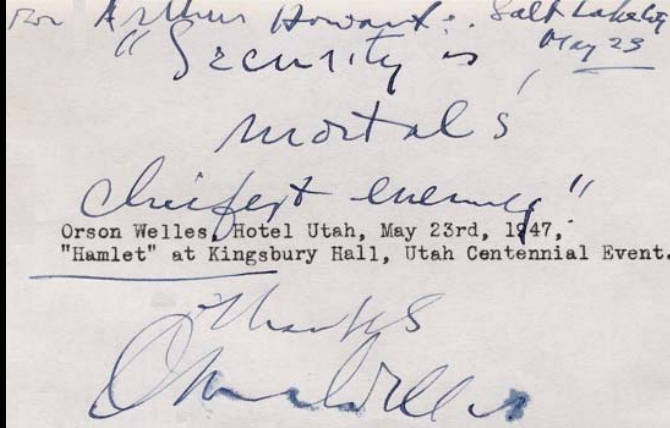 For Arthur Howard. Salt Lake City
May 23
"Security is
mortal's
chiefest enemy"
Orson Welles, Hotel Utah, May 23rd, 1947,
"Hamlet" at Kingsbury Hall, Utah Centennial Event.
Thanks
Orson Welles